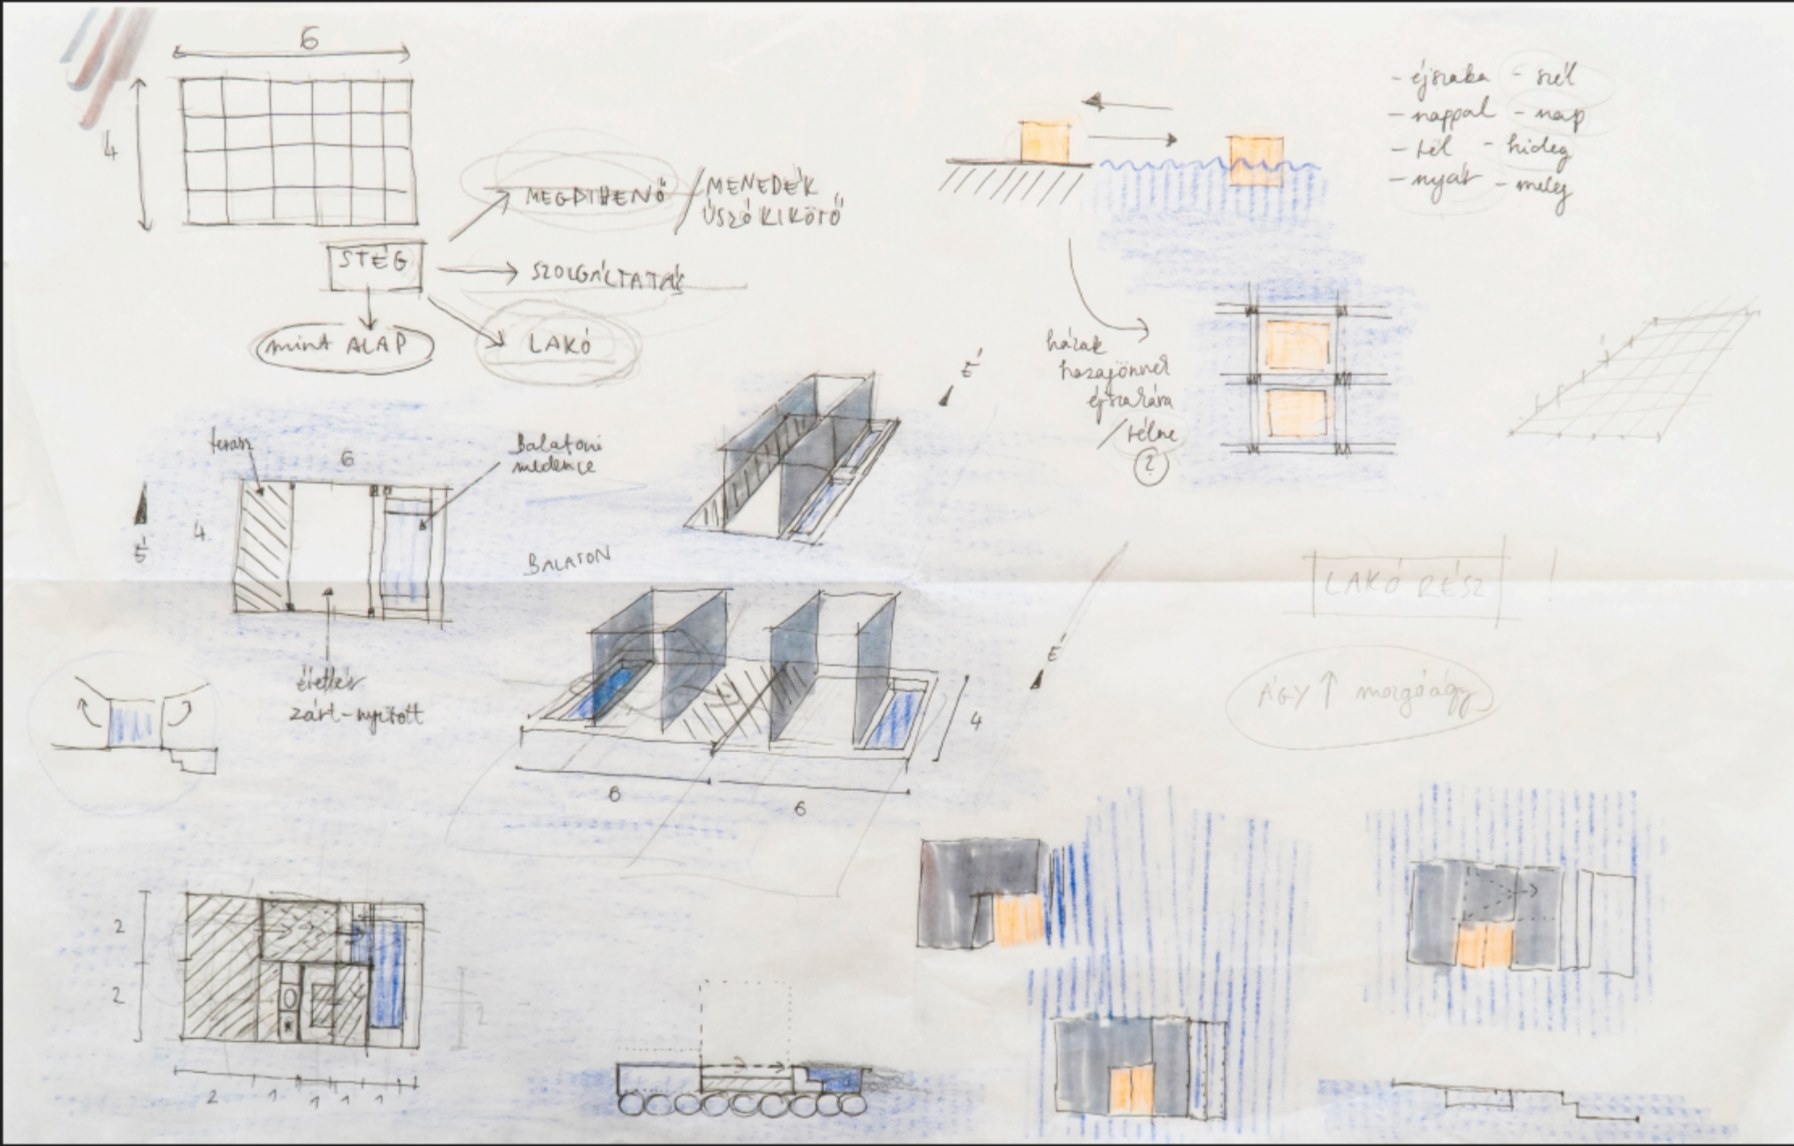 6
4
MEGPIHENŐ / MENEDÉK
ÚSZÓ KIKÖTŐ
STÉG
SZOLGÁLTATÁS
mint ALAP
LAKÓ
- éjszaka - szél
- nappal - nap
- tél - hideg
- nyár - meleg
házak
hazajönnek
éjszakára
/ télre
?
É
terasz
6
Balatoni
medence
4
É
BALATON
zárt-nyitott
4
6
6
É
LAKÓ RÉSZ !
ÁGY ↑ mozgóágy
2
2
2
2 1 1 1 1